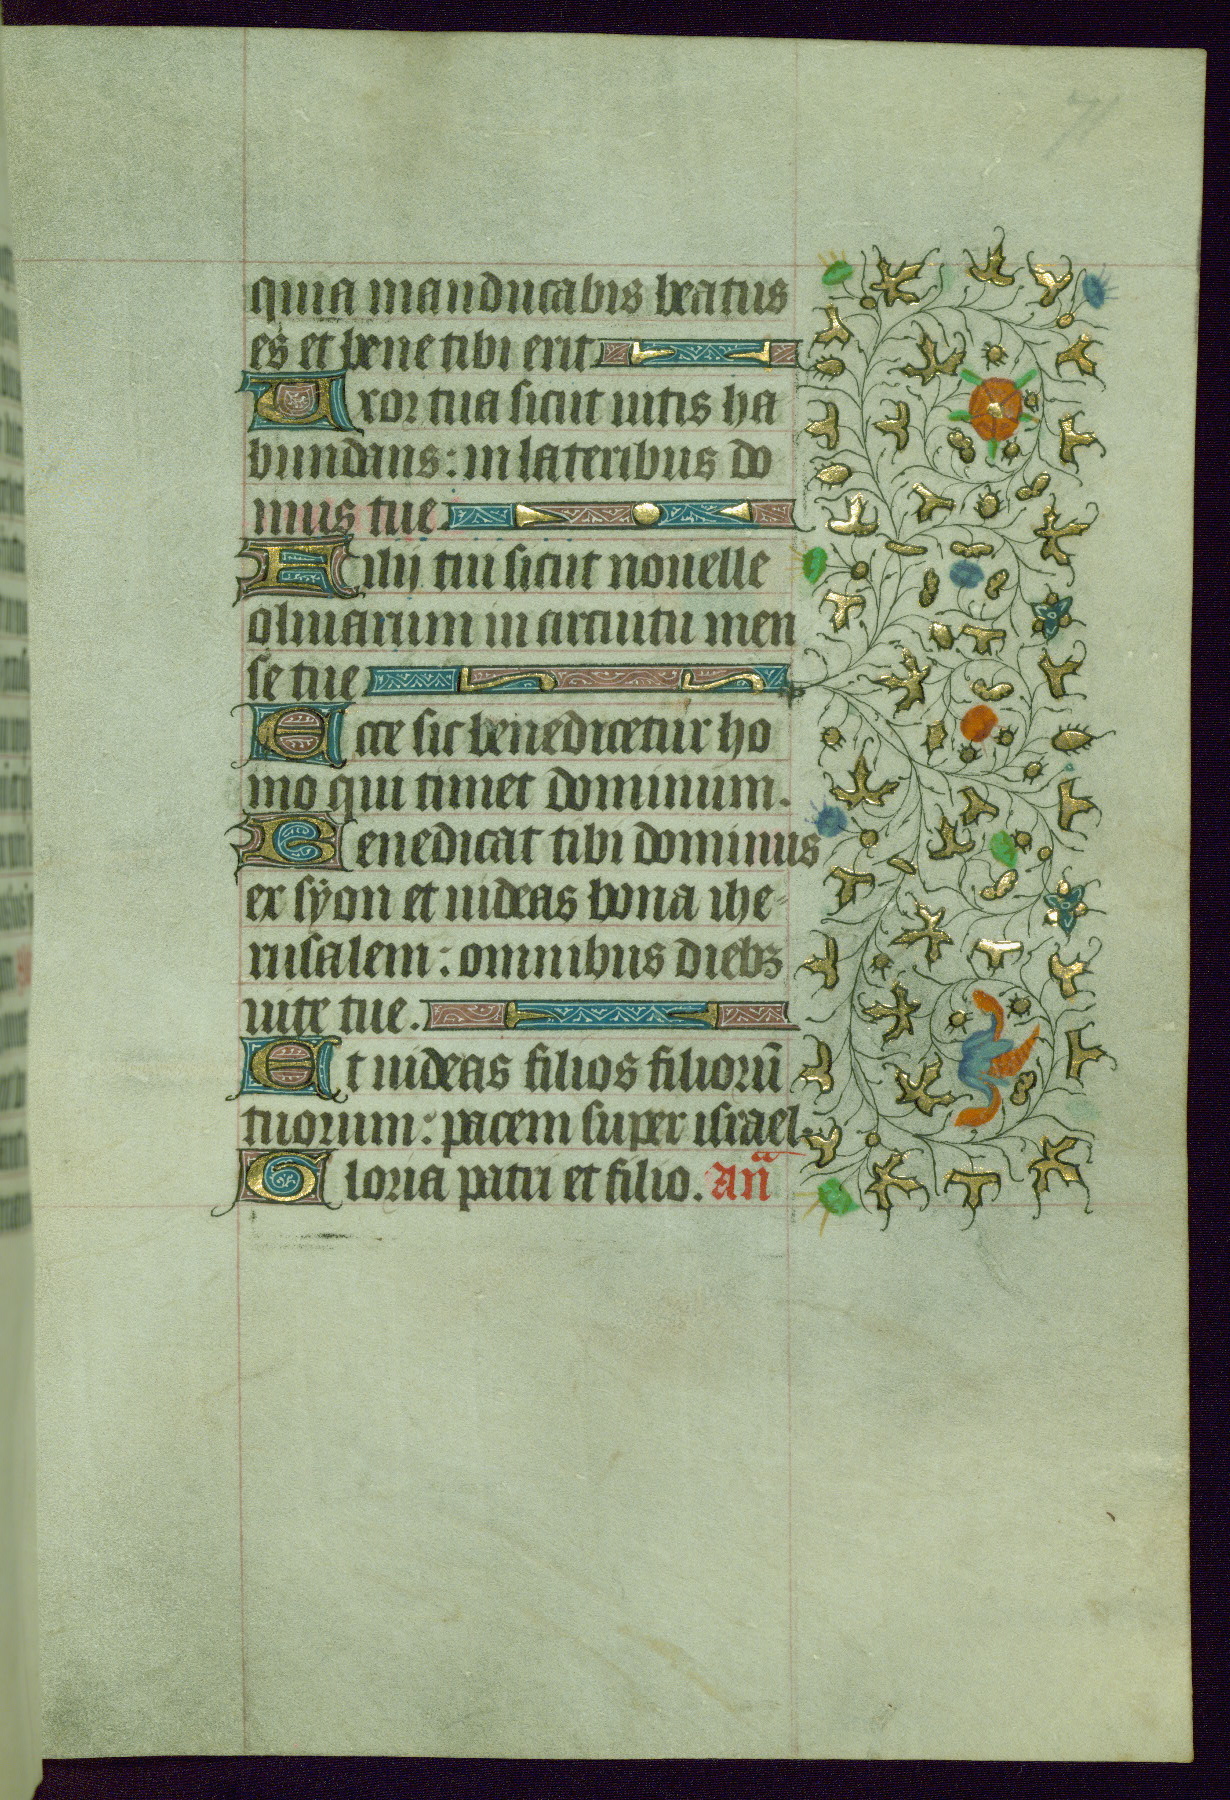 71
quia manducabis beatus
es et bene tibi erit
Uxor tua sicut uitis ha
bundans: in lateribus do
mus tue
Filij tui sicut nouelle
oliuarum in circuitu men
se tue
Ecce sic benedicetur ho
mo qui timet dominum.
Benedicat tibi dominus
ex syon et uideas bona ihe-
rusalem: omnibus diebꝫ
uite tue.
Et uideas filios filiorū
tuorum: pacem super israel.
Gloria patri et filio. Añ